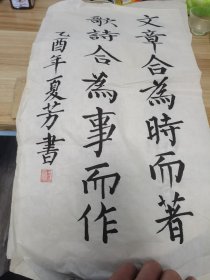 文章合為時而著
歌詩合為事而作
乙酉年夏芳書